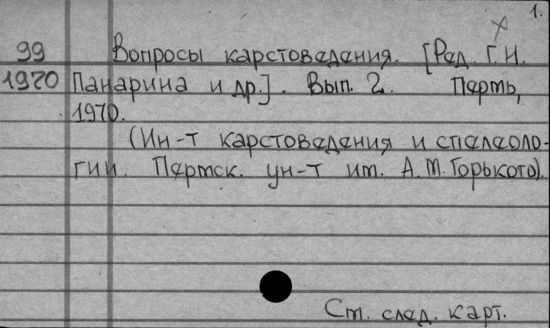 1.
99 Вопросы карстоведения. [Ред. Г.Н.
1970 Панарина и др.]. Вып. 2. Пермь,
1970.
(Ин-т карстоведения и спелеоло-
гии. Пермск. ун-т им. А.М.Горького).
См. след. карт.